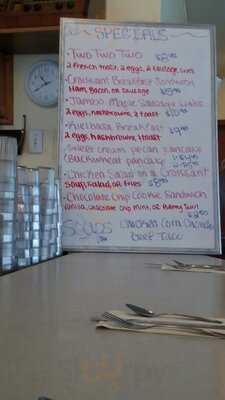 SPECIALS
• Two Two Two $8.00
2 French toast, 2 eggs, 2 sausage links
• Croissant Breakfast Sandwich
Ham, Bacon, or Sausage
• Jumbo Maple Sausage Links
2 eggs, hashbrowns, 2 toast
• Kielbasa Breakfast $9.00
2 eggs, hashbrowns, 1 toast
• Sweet cream pecan pancake
(Buckwheat pancake)
• Chicken Salad on a Croissant
Soup, Salad, or Fries $8.00
• Chocolate Chip Cookie Sandwich
Vanilla, Chocolate Chip Mint, or
Soups Chicken Corn Chowder
Beef Taco